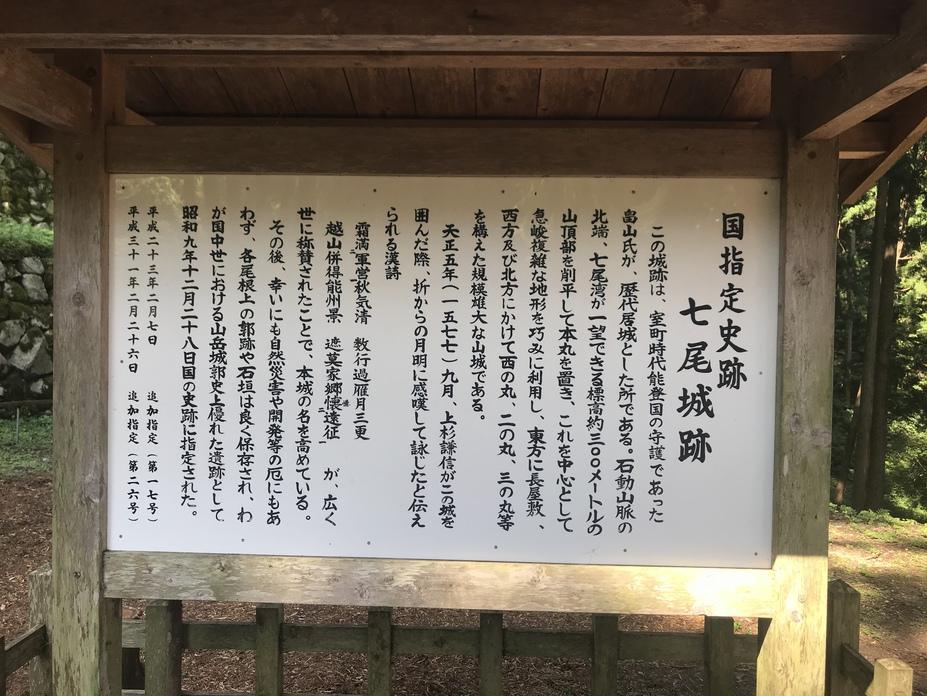 国指定史跡
七尾城跡
この城跡は、室町時代能登国の守護であった
畠山氏が、歴代居城とした所である。石動山脈の
北端、七尾湾が一望できる標高約三〇〇メートルの
山頂部を削平して本丸を置き、これを中心として
急峻複雑な地形を巧みに利用し、東方に長屋敷、
西方及び北方にかけて西の丸、二の丸、三の丸等
を構えた規模雄大な山城である。
天正五年(一五七七)九月、上杉謙信がこの城を
囲んだ際、折からの月明に感嘆して詠じたと伝え
られる漢詩
霜満軍営秋気清 数行過雁月三更
越山併得能州景 遮莫家郷懐遠征 が、広く
世に称賛されたことで、本城の名を高めている。
その後、幸いにも自然災害や開発等の厄にもあ
わず、各尾根上の郭跡や石垣は良く保存され、わ
が国中世における山岳城郭史上優れた遺跡として
昭和九年十二月二十八日国の史跡に指定された。
平成二十三年二月七日 追加指定(第一七号)
平成三十一年二月二十六日 追加指定(第二六号)